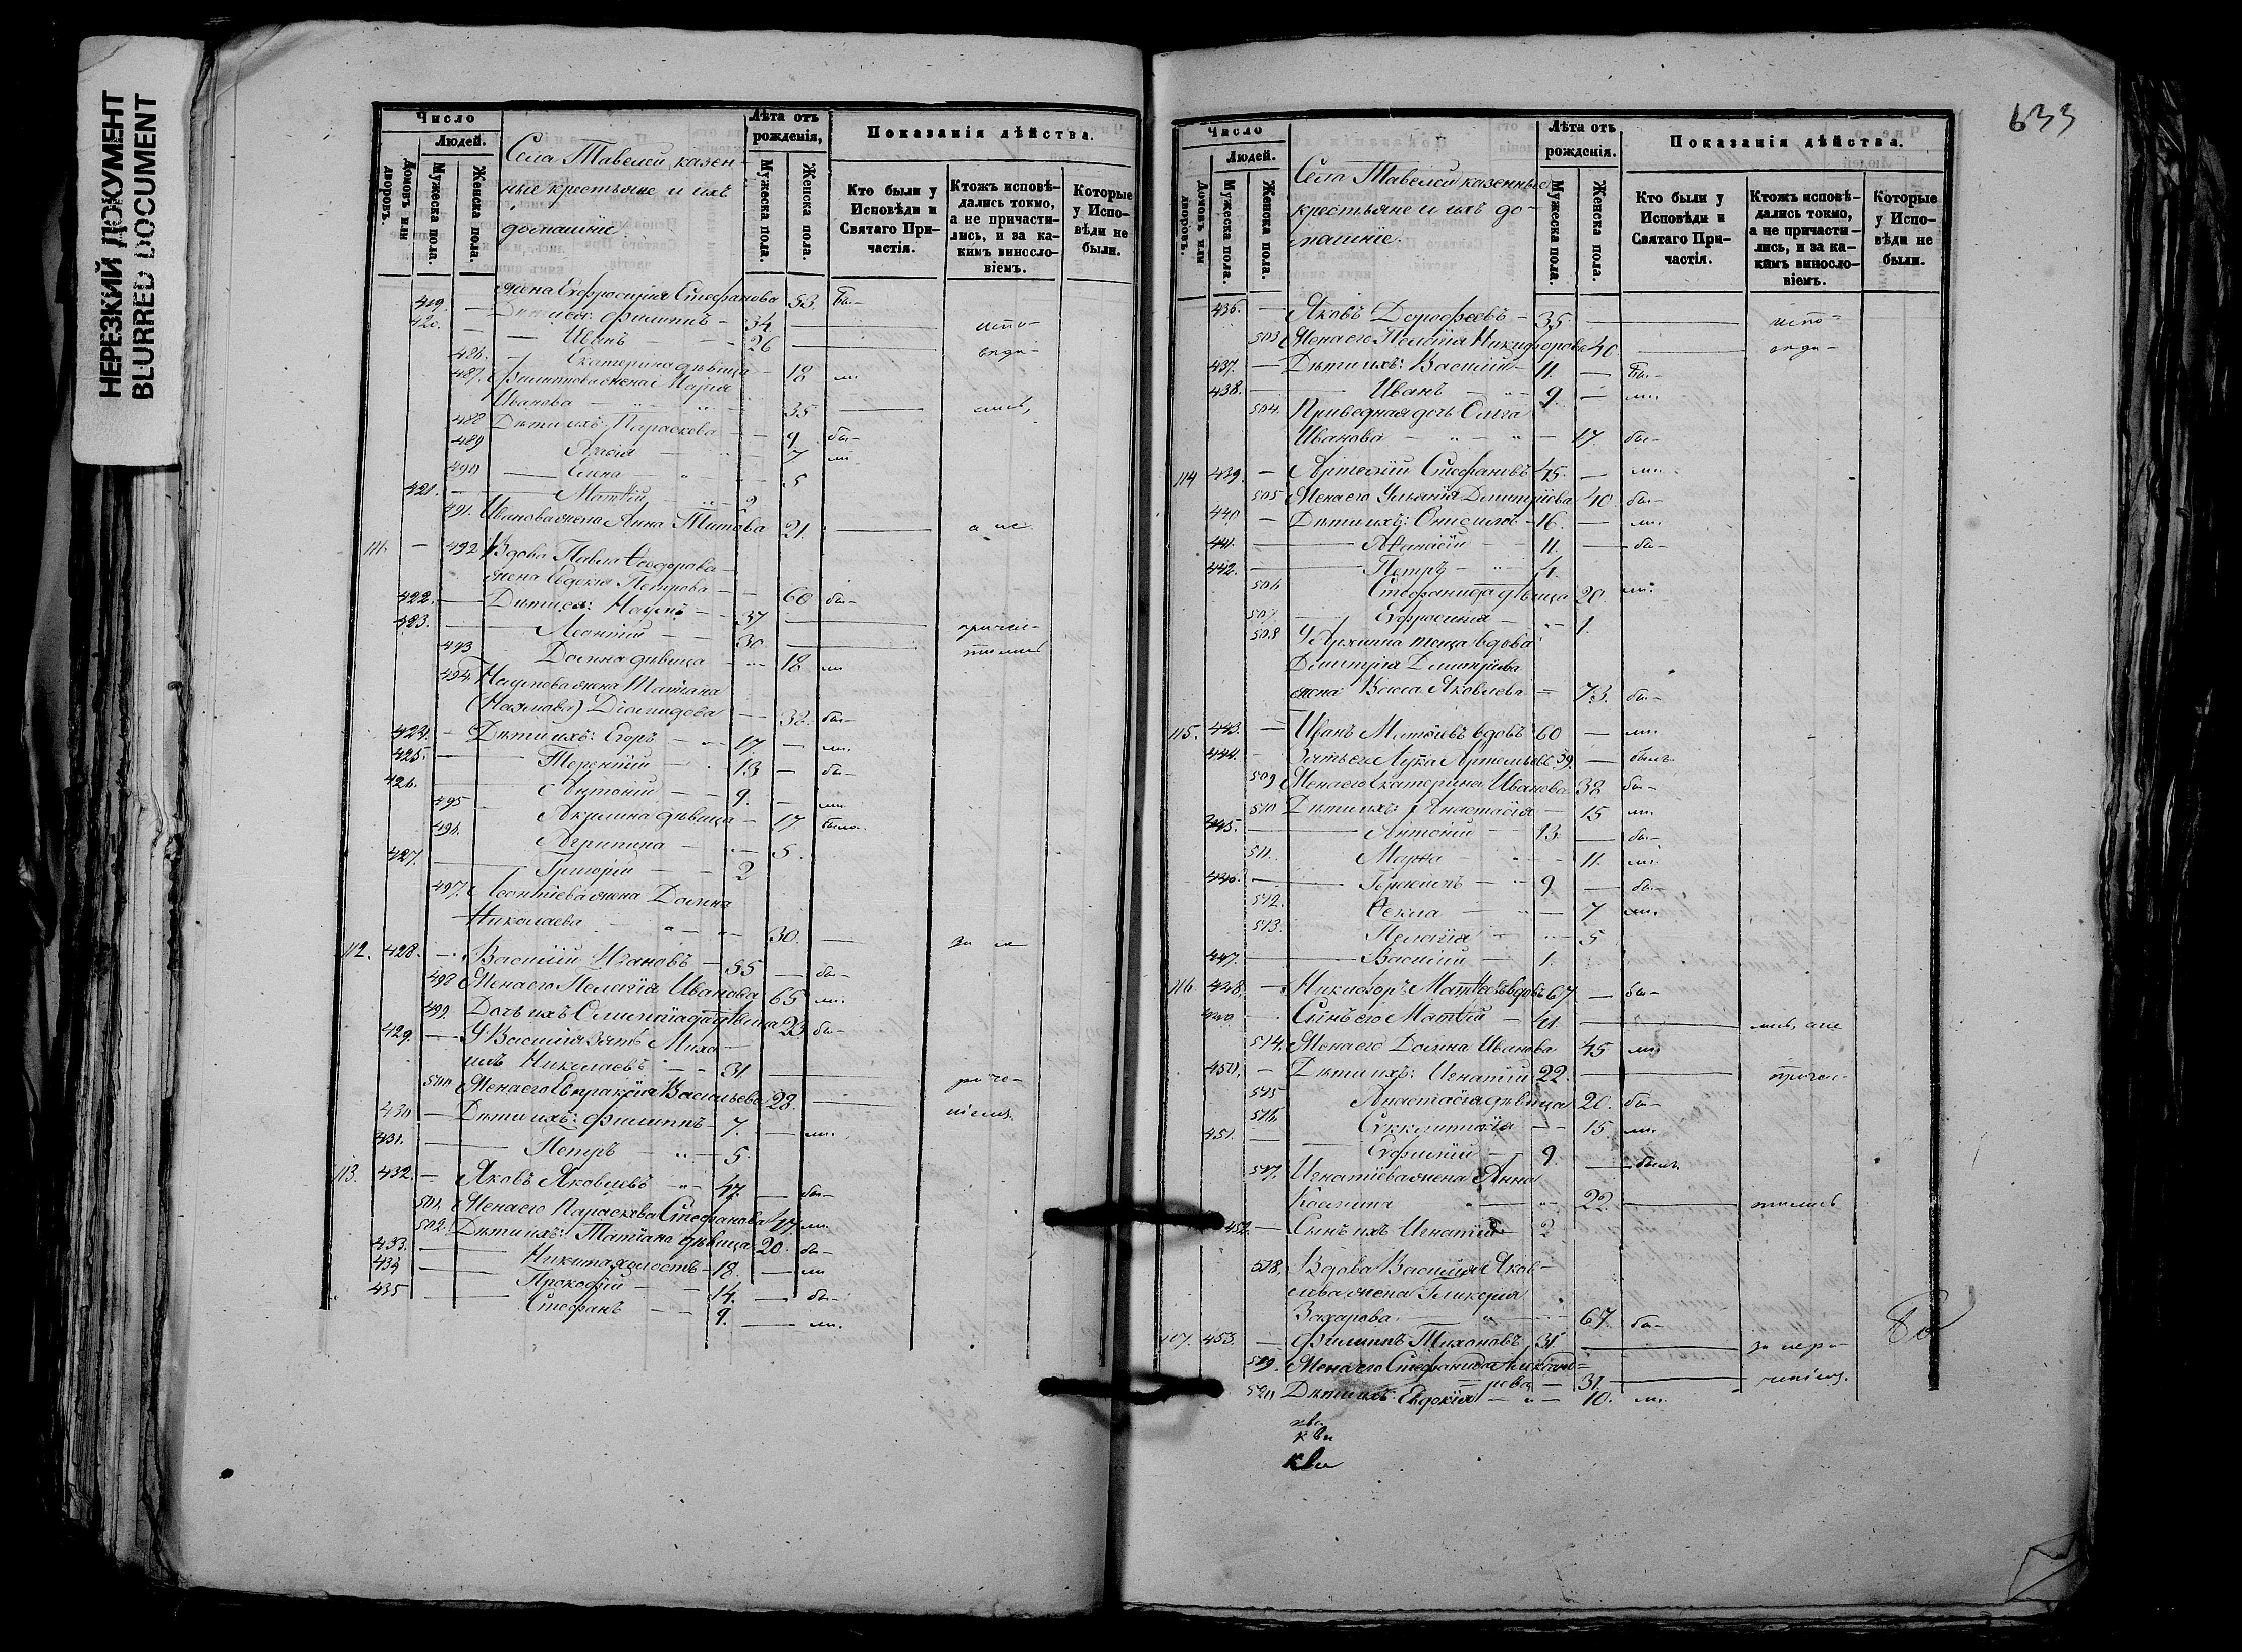 НЕРЕЗКИЙ ДОКУМЕНТ
BLURRED DOCUMENT
Число
Людей.
Домовъ или дворовъ.
Мужеска пола.
Женска пола.
Села Тавелей, казен-
ные крестьяне и ихъ
домашніе.
Лѣта отъ рожденія,
Мужеска пола.
Женска пола.
Показанія дѣйства.
Кто были у Исповѣди и Святаго При-частія.
Ктожъ исповѣ-дались токмо, а не причасти-лись, и за ка-кимъ винословіемъ.
Которые у Испо-вѣди не были.
жена Евфросинія Стефанова 53. бы-
419. — Дѣти ея: Филиппъ — 34. испо-
420. — Иванъ — 26 вѣда-
486. — Екатерина дѣвица — 18 ли
487. Филиппова жена Марія
Иванова — 35 лись,
488 Дѣти ихъ: Параскева — 9 бы-
489 7 ли
490 — Елена — 5
421. — Матѳій — 2
491. Иванова жена Анна Титова 21. а не
111. — 492 Вдова Павла Ѳеодорова
жена Евдокія Петрова — 60 бы-
422. — Дѣти ея: Наумъ — 37
423. — Леонтій — 30
493 Домна дѣвица — 18 ли
494. Наумова жена Татіана
Діомидова — 32. бы-
424. — Дѣти ихъ: Егоръ — 17 — ли.
425. — Терентій — 13 — бы-
426. — Антоній — 9. — ли.
495 Акилина дѣвица — 17 была.
496. Агрипина — 5.
427. — Григорій — 2
497. Леонтіева жена Домна
Николаева — 30. — за
112. 428. — Василій Ивановъ — 55 — бы-
498 Жена его Пелагія Иванова 65 ли.
499. Дочь ихъ дѣвица 23 бы-
429. — У Василія зять Миха-
илъ Николаевъ — 31
500 Жена его Евпраксія Васильева 28.
430 — Дѣти ихъ: Филиппъ — 7. — ли.
431. — Петръ — 5.
113. 432. — Яковъ Яковлевъ — 47. — бы-
501. Жена его Параскева Стефанова 47 ли.
502. Дѣти ихъ: Татіана дѣвица 20. бы-
433. — Никита холостъ — 18. — ли
434 — Прокофій — 14. — бы-
435 — Стефанъ — 9. — ли.
633
Число
Людей.
Домовъ или дворовъ.
Мужеска пола.
Женска пола.
Села Тавелей казенные
крестьяне и ихъ до-
машніе.
Лѣта отъ рожденія.
Мужеска пола.
Женска пола.
Показанія дѣйства.
Кто были у Исповѣди и Святаго При-частія.
Ктожъ исповѣ-дались токмо, а не причасти-лись, и за ка-кимъ винословіемъ.
Которые у Испо-вѣди не были.
436. — Яковъ Дорофеевъ — 35. испо-
503 Жена его Пелагія Никифорова 40. вѣда-
437. — Дѣти ихъ: Василій — 11. — бы-
438. — Иванъ — 9. — ли.
504. Приводная дочь Ольга
Иванова — 17. бы-
114 439. — Артемій Стефановъ 45. — ли.
505 Жена его Ульянія Димитріева 40. бы-
440 — Дѣти ихъ: Онисимъ — 16. — ли.
441. — Аѳанасій — 11. — бы-
442. — Петръ — 4.
506 Стефанида дѣвица 20. ли.
507. Евфросинія — 1.
508 У теща вдова
Димитрія Димитріева
жена Васса Яковлева — 73. бы-
115. 443. — Иванъ Матѳіевъ вдовъ 60 — ли.
444. — Зять его Лука Артемьевъ 39. — былъ
509 Жена его Екатерина Иванова 38 бы-
510 Дѣти ихъ: Анастасія — 15 ли.
445. — Антоній — 13 — бы-
511. Марѳа — 11. ли.
446. — Герасимъ — 9. — бы-
512. Ѳекла — 7 ли.
513. Пелагія — 5
447. — Василій — 1.
116. 448. — Никифоръ Матѳеевъ вдовъ 67. — бы-
449 — Сынъ его Матѳій — 41. лись, а не
514. Жена его Домна Иванова 45 ли
450. — Дѣти ихъ: Игнатій 22. причас-
515 Анастасія дѣвица 20. бы-
516. Синклитикія — 15. ли.
451. — Ефимій — 9. — былъ
517. Игнатіева жена Анна
Козмина — 22. тились
452. — Сынъ ихъ Игнатій 2
518. Вдова Василія Яков-
лева жена Гликерія
Захарова — 67. бы-
117. 453. — Филиппъ Тихоновъ 31 за нера-
519. Жена его Стефанида Алексан-
рова — 31. дѣніемъ.
520 Дѣти ихъ: Евдокія — 10. ли.